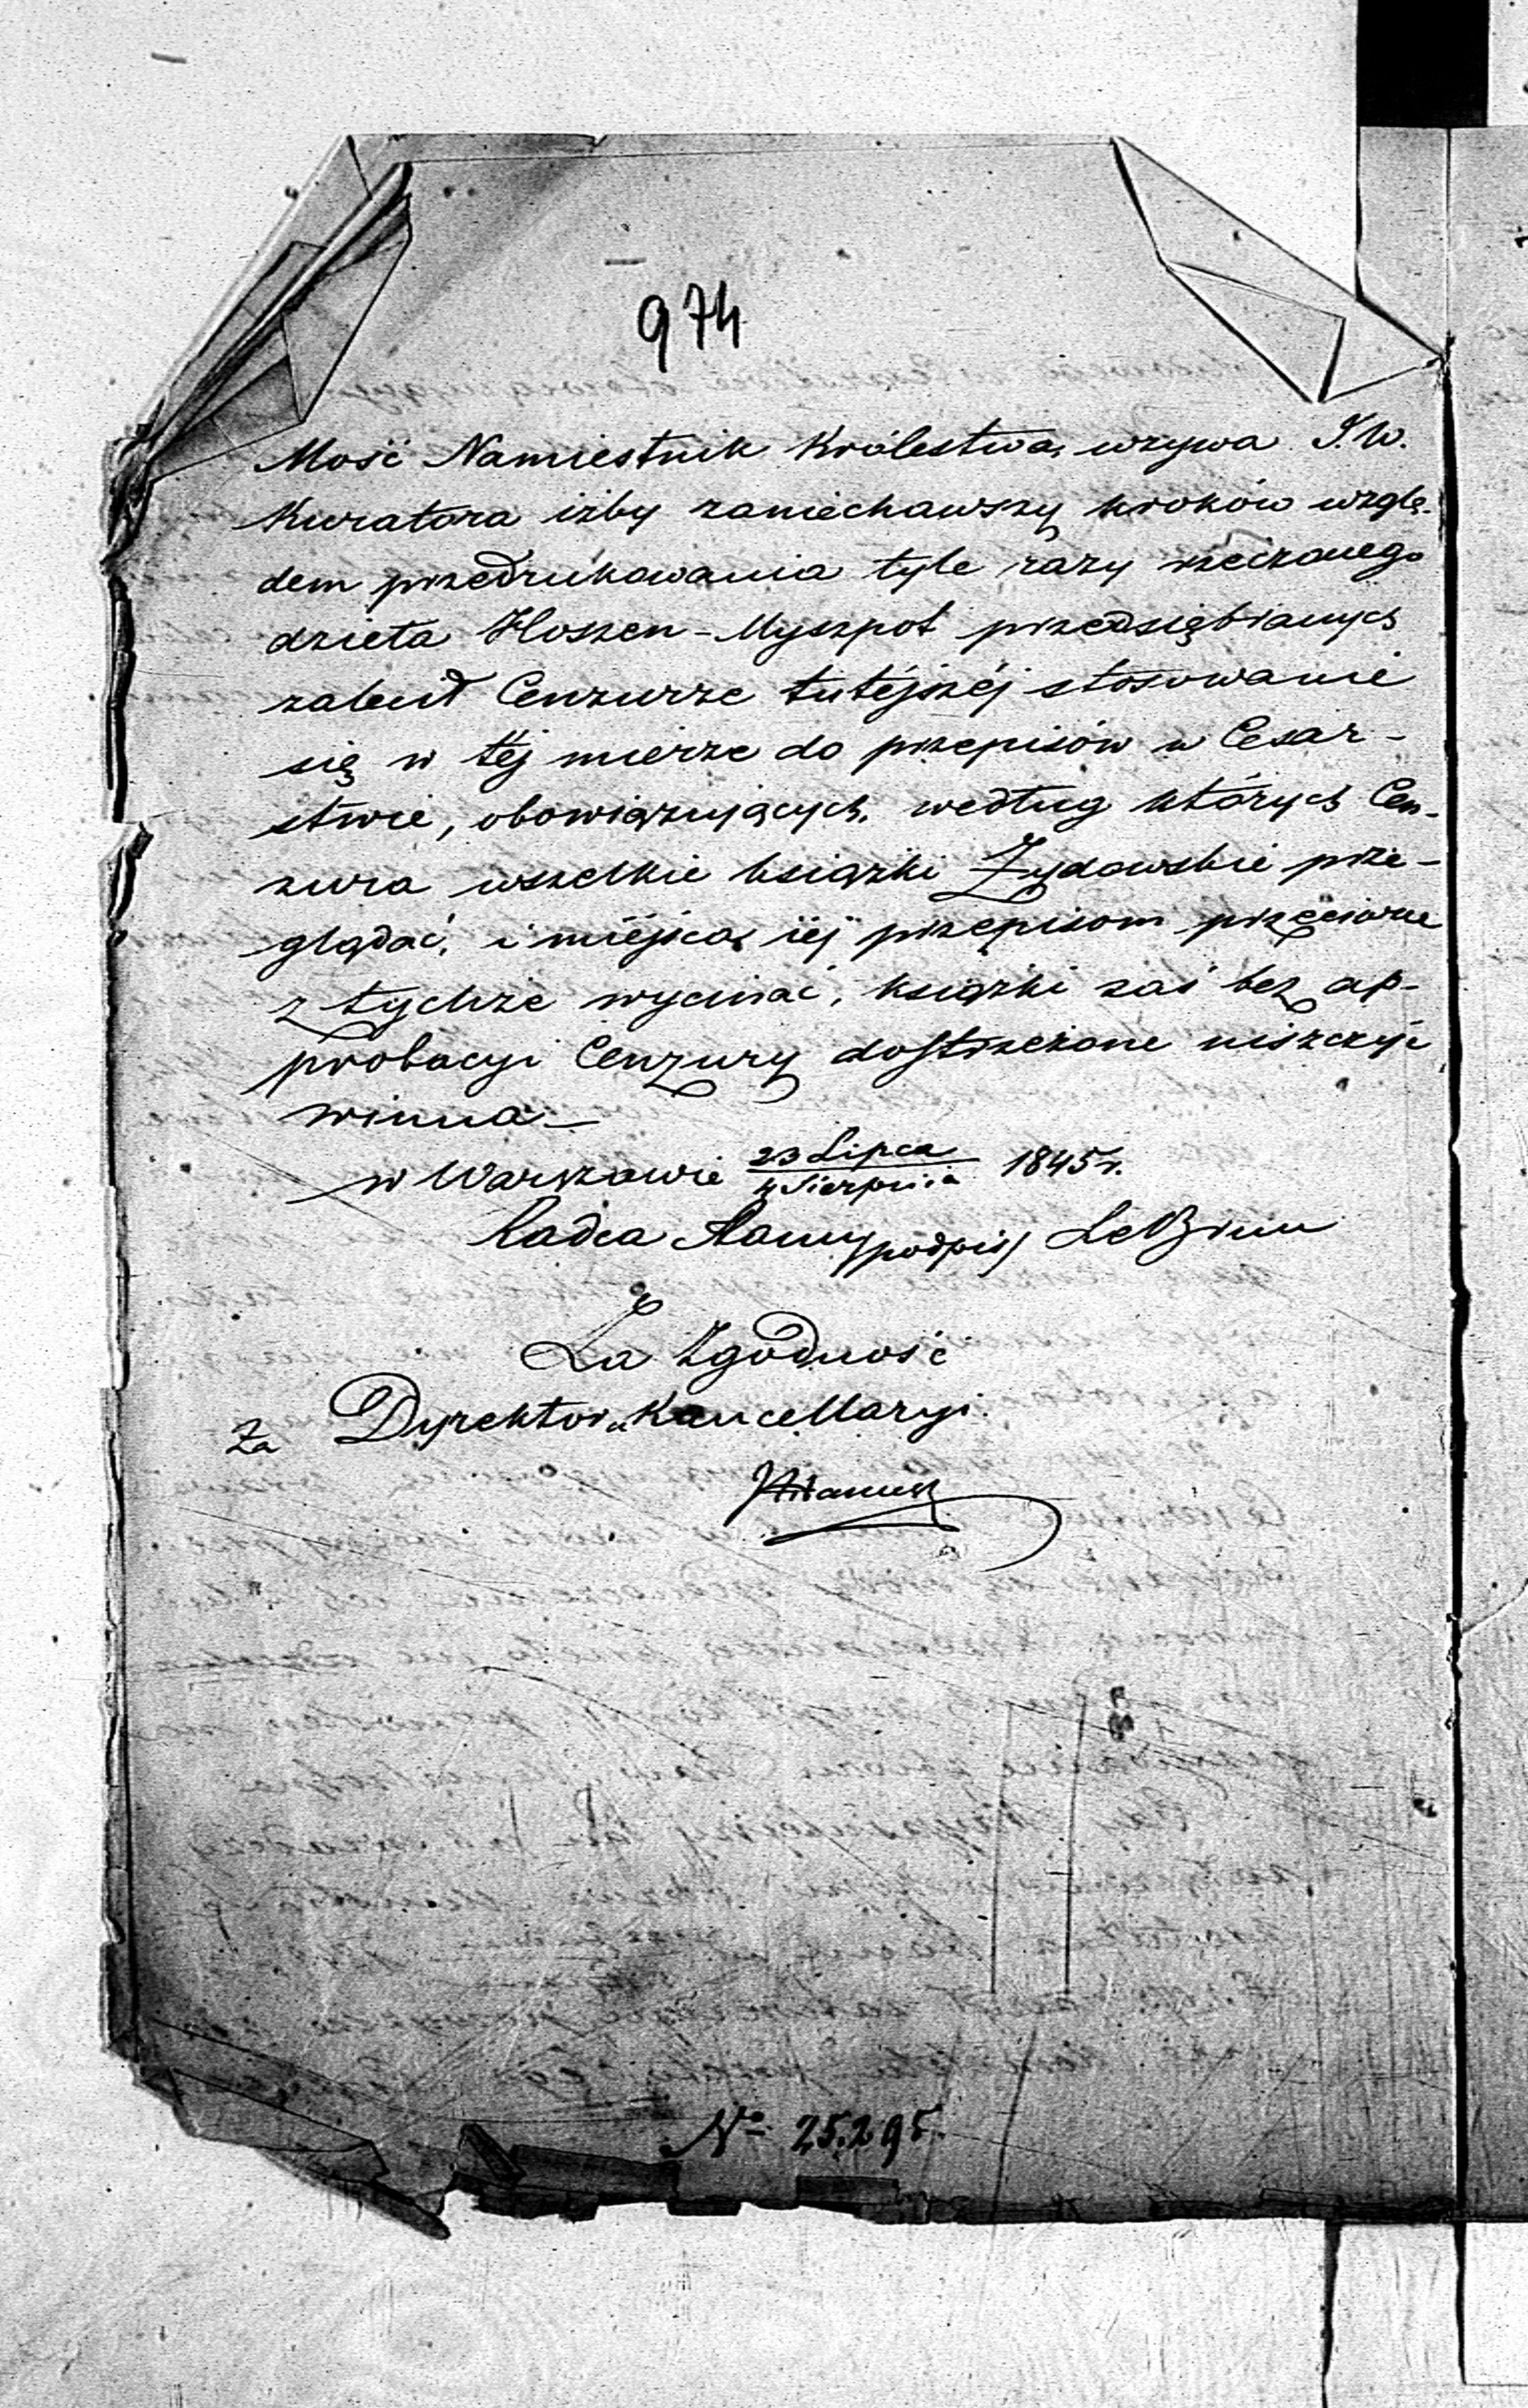 974
Mość Namiestnik Królestwa, wzywa J.W.
Kuratora iżby zaniechawszy kroków wzglę-
dem przedrukowania tyle razy rzeczonego
dzieła Hoszen-Myszpot przedsiębranych
zalecił Cenzurze tutéjszéj stosowanie
się w téj mierze do przepisów w Cesar-
stwie, obowiązujących, według których Cen-
zura wszelkie książki Żydowskie prze-
glądać, i miéjsca iéj przepisom przeciwne
z tychże wycinać, książki zaś bez ap-
probacyi Cenzury dostrzeżone niszczyć
winna
w Warszawie 23 Lipca / 4 Sierpnia 1845 r.
Radca Stanu /podpis/ Le Brun
Za Zgodność
Za Dyrektora Kancellaryi
No 25.295.